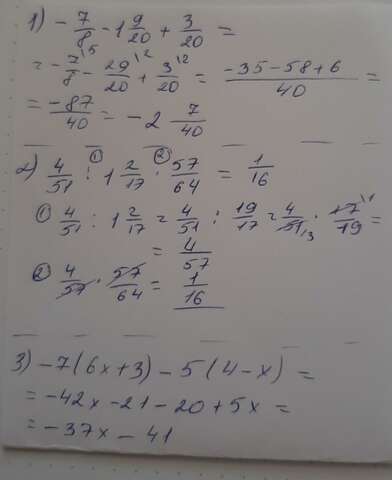 1) -7/8 - 1 9/20 + 3/20 =
= -7\5/8 - 29\2/20 + 3\2/20 = (-35-58+6)/40 =
= -87/40 = -2 7/40
2) 4/51 :① 1 2/17 ·② 57/64 = 1/16
① 4/51 : 1 2/17 = 4/51 : 19/17 = 4/51 3 · 17\1/19 =
= 4/57
② 4/57 · 57/64 = 1/16
3) -7(6x+3) - 5(4-x) =
= -42x - 21 - 20 + 5x =
= -37x - 41